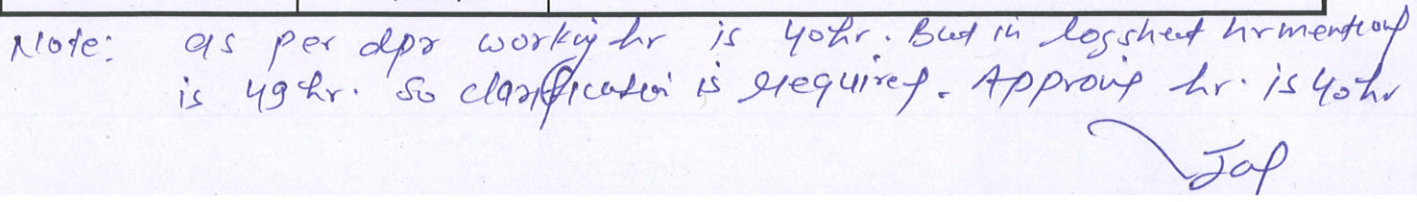 Note: as per dpr working hr is 40hr. But in logsheet hr mentiond
is 49hr. So clarification is required. Approvd hr. is 40hr